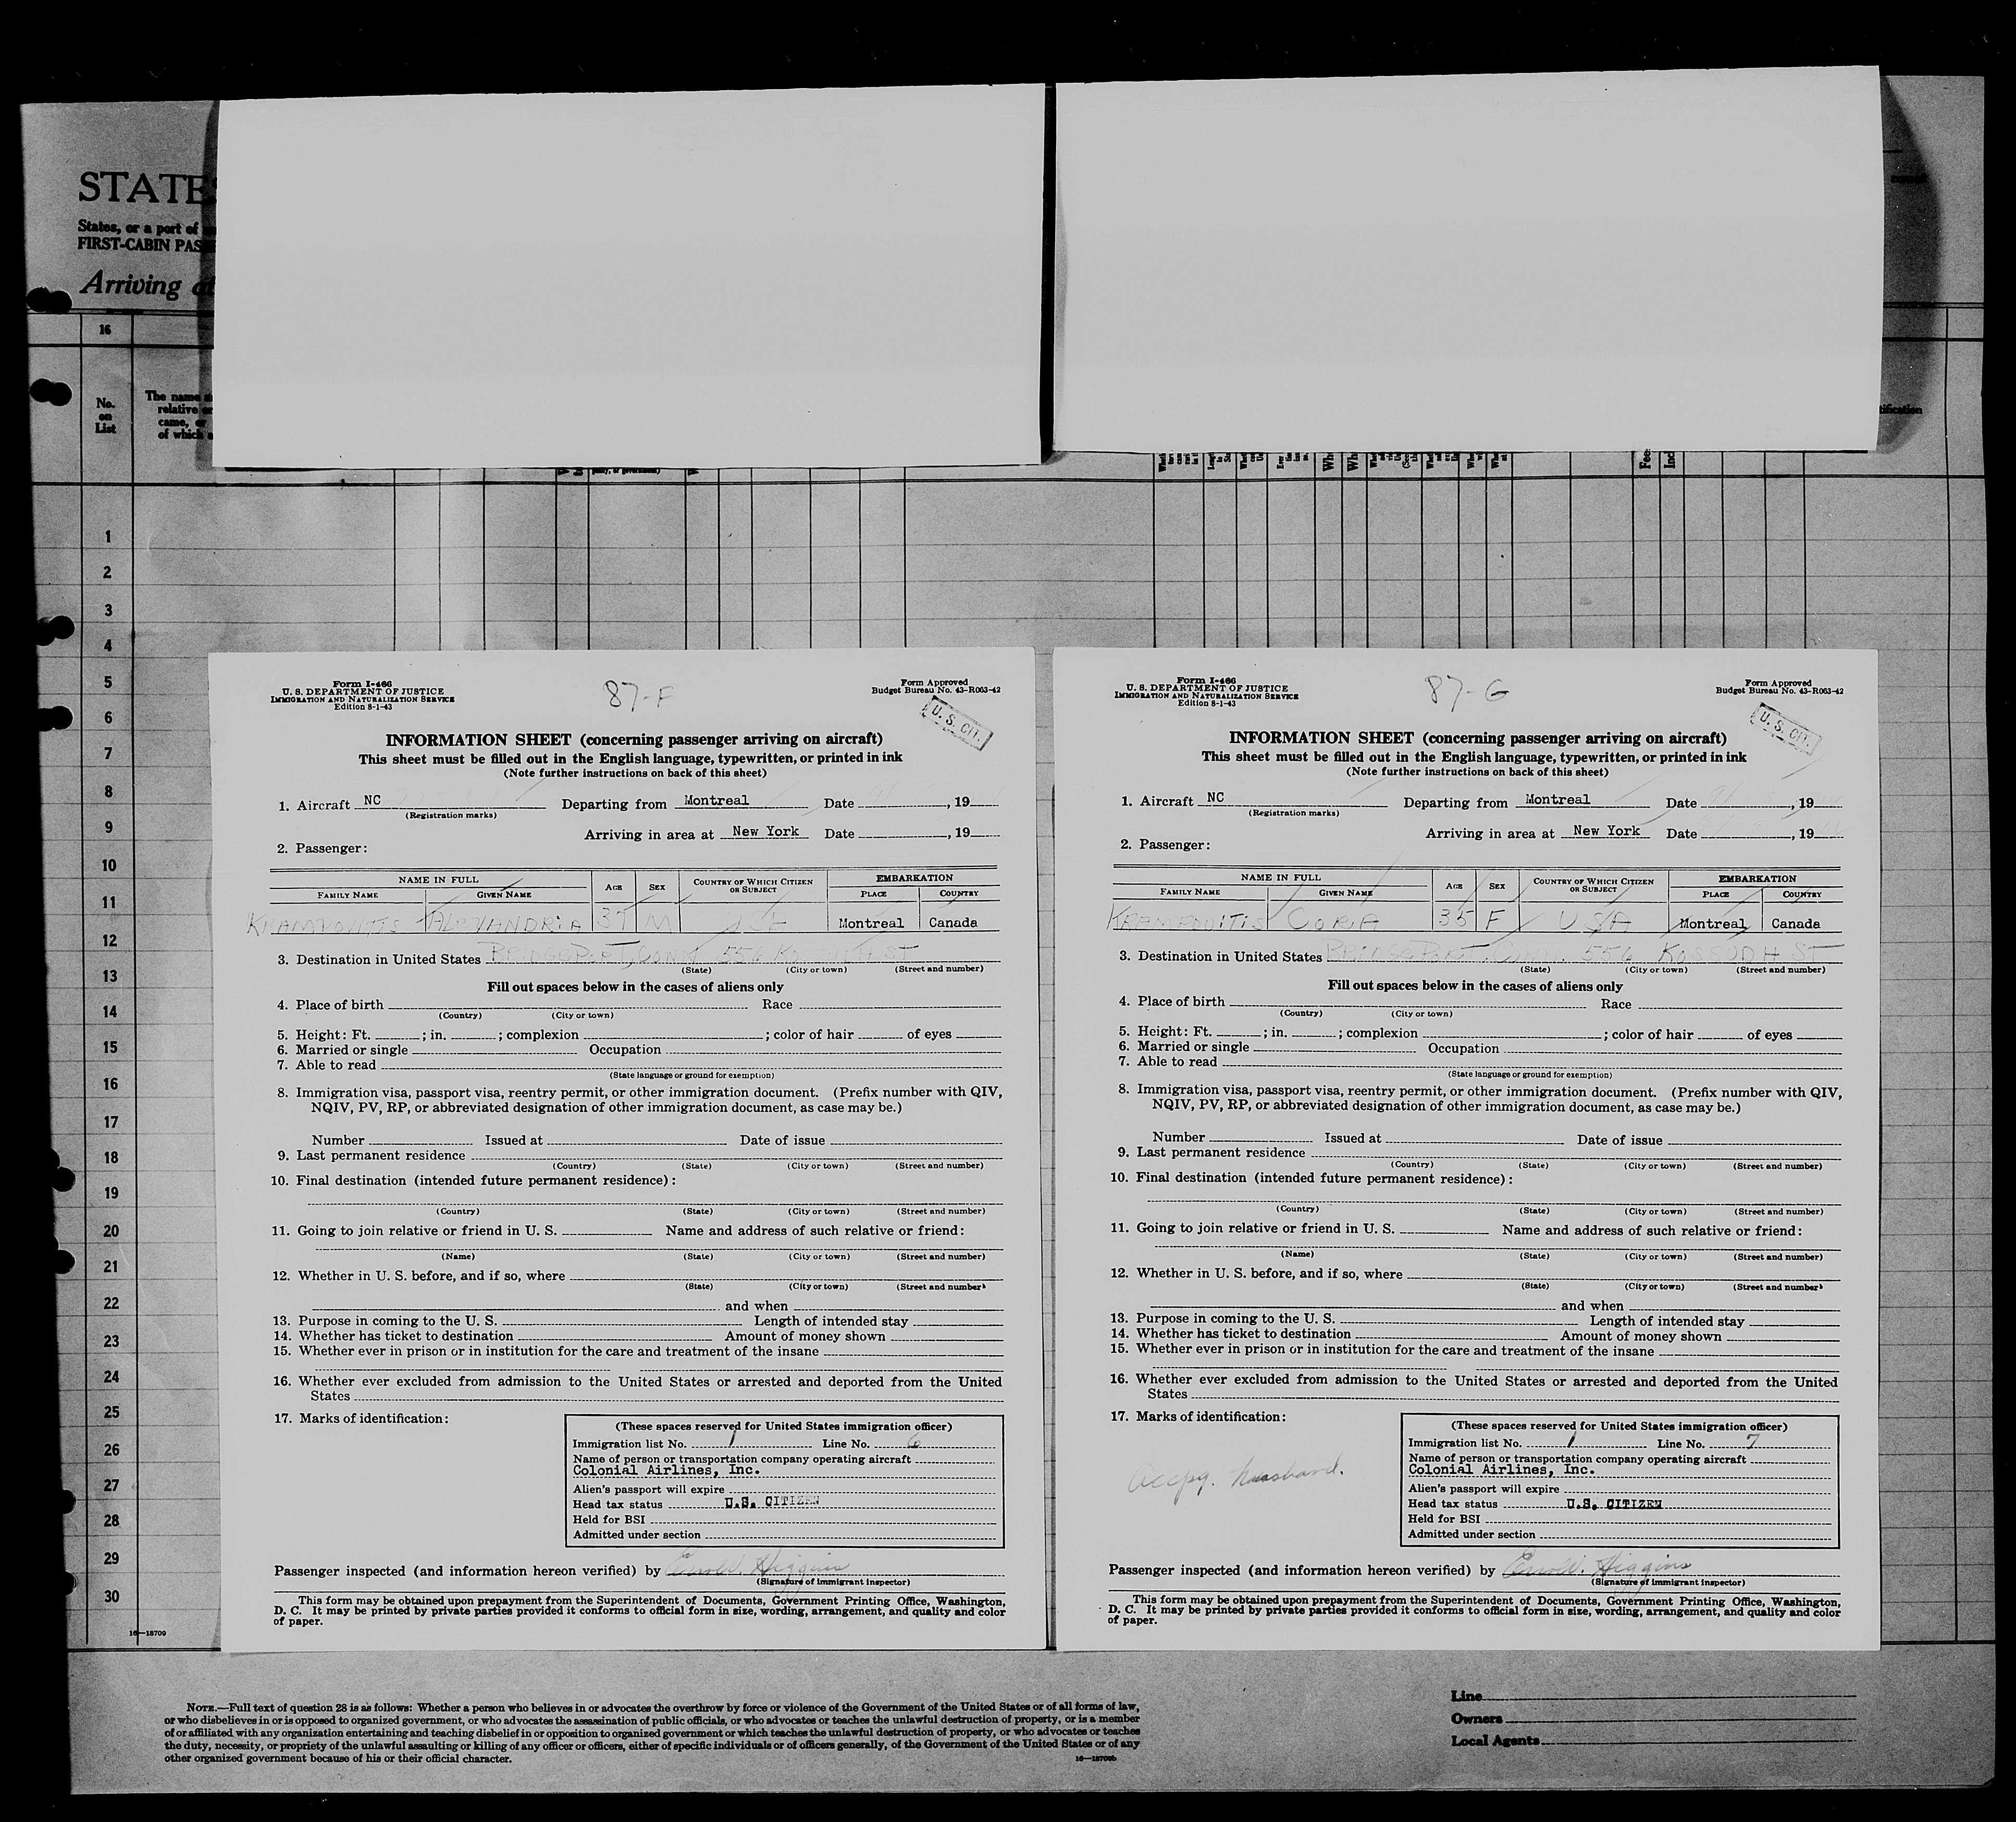 STATES
States, or a port of
FIRST-CABIN PAS
Arriving at
16
No.
on
List
The name
relative or
came, or
of which
party, or government)
tification
Fee
Incl
1
2
3
4
5
6
7
8
9
10
11
12
13
14
15
16
17
18
19
20
21
22
23
24
25
26
27
28
29
30
16—18709
Form I-466
U. S. DEPARTMENT OF JUSTICE
IMMIGRATION AND NATURALIZATION SERVICE
Edition 8-1-43
87-F
Form Approved
Budget Bureau No. 43-R063-42
U. S. CIT.
INFORMATION SHEET (concerning passenger arriving on aircraft)
This sheet must be filled out in the English language, typewritten, or printed in ink
(Note further instructions on back of this sheet)
1. Aircraft NC Departing from Montreal Date , 19
(Registration marks)
Arriving in area at New York Date , 19
2. Passenger:
NAME IN FULL AGE SEX COUNTRY OF WHICH CITIZEN OR SUBJECT EMBARKATION
FAMILY NAME GIVEN NAME PLACE COUNTRY
KRAMPOVITIS ALEXANDRIA 37 M Montreal Canada
3. Destination in United States BRIDGEPORT, CONN 556 ST
(State) (City or town) (Street and number)
Fill out spaces below in the cases of aliens only
4. Place of birth Race
(Country) (City or town)
5. Height: Ft. ; in. ; complexion ; color of hair of eyes
6. Married or single Occupation
7. Able to read
(State language or ground for exemption)
8. Immigration visa, passport visa, reentry permit, or other immigration document. (Prefix number with QIV,
NQIV, PV, RP, or abbreviated designation of other immigration document, as case may be.)
Number Issued at Date of issue
9. Last permanent residence
(Country) (State) (City or town) (Street and number)
10. Final destination (intended future permanent residence):
(Country) (State) (City or town) (Street and number)
11. Going to join relative or friend in U. S. Name and address of such relative or friend:
(Name) (State) (City or town) (Street and number)
12. Whether in U. S. before, and if so, where
(State) (City or town) (Street and number)
and when
13. Purpose in coming to the U. S. Length of intended stay
14. Whether has ticket to destination Amount of money shown
15. Whether ever in prison or in institution for the care and treatment of the insane
16. Whether ever excluded from admission to the United States or arrested and deported from the United
States
17. Marks of identification:
(These spaces reserved for United States immigration officer)
Immigration list No. 1 Line No. 6
Name of person or transportation company operating aircraft
Colonial Airlines, Inc.
Alien's passport will expire
Head tax status U.S. CITIZEN
Held for BSI
Admitted under section
Passenger inspected (and information hereon verified) by Higgins
(Signature of immigrant inspector)
This form may be obtained upon prepayment from the Superintendent of Documents, Government Printing Office, Washington,
D. C. It may be printed by private parties provided it conforms to official form in size, wording, arrangement, and quality and color
of paper.
Form I-466
U. S. DEPARTMENT OF JUSTICE
IMMIGRATION AND NATURALIZATION SERVICE
Edition 8-1-43
87-G
Form Approved
Budget Bureau No. 43-R063-42
U. S. CIT.
INFORMATION SHEET (concerning passenger arriving on aircraft)
This sheet must be filled out in the English language, typewritten, or printed in ink
(Note further instructions on back of this sheet)
1. Aircraft NC Departing from Montreal Date , 19
(Registration marks)
Arriving in area at New York Date , 19
2. Passenger:
NAME IN FULL AGE SEX COUNTRY OF WHICH CITIZEN OR SUBJECT EMBARKATION
FAMILY NAME GIVEN NAME PLACE COUNTRY
KRAMPOVITIS CORA 35 F USA Montreal Canada
3. Destination in United States BRIDGEPORT CONN. 556 KOSSUDH ST
(State) (City or town) (Street and number)
Fill out spaces below in the cases of aliens only
4. Place of birth Race
(Country) (City or town)
5. Height: Ft. ; in. ; complexion ; color of hair of eyes
6. Married or single Occupation
7. Able to read
(State language or ground for exemption)
8. Immigration visa, passport visa, reentry permit, or other immigration document. (Prefix number with QIV,
NQIV, PV, RP, or abbreviated designation of other immigration document, as case may be.)
Number Issued at Date of issue
9. Last permanent residence
(Country) (State) (City or town) (Street and number)
10. Final destination (intended future permanent residence):
(Country) (State) (City or town) (Street and number)
11. Going to join relative or friend in U. S. Name and address of such relative or friend:
(Name) (State) (City or town) (Street and number)
12. Whether in U. S. before, and if so, where
(State) (City or town) (Street and number)
and when
13. Purpose in coming to the U. S. Length of intended stay
14. Whether has ticket to destination Amount of money shown
15. Whether ever in prison or in institution for the care and treatment of the insane
16. Whether ever excluded from admission to the United States or arrested and deported from the United
States
17. Marks of identification:
Accpg. husband.
(These spaces reserved for United States immigration officer)
Immigration list No. 1 Line No. 7
Name of person or transportation company operating aircraft
Colonial Airlines, Inc.
Alien's passport will expire
Head tax status U.S. CITIZEN
Held for BSI
Admitted under section
Passenger inspected (and information hereon verified) by Higgins
(Signature of immigrant inspector)
This form may be obtained upon prepayment from the Superintendent of Documents, Government Printing Office, Washington,
D. C. It may be printed by private parties provided it conforms to official form in size, wording, arrangement, and quality and color
of paper.
NOTE.—Full text of question 28 is as follows: Whether a person who believes in or advocates the overthrow by force or violence of the Government of the United States or of all forms of law,
or who disbelieves in or is opposed to organized government, or who advocates the assassination of public officials, or who advocates or teaches the unlawful destruction of property, or is a member
of or affiliated with any organization entertaining and teaching disbelief in or opposition to organized government or which teaches the unlawful destruction of property, or who advocates or teaches
the duty, necessity, or propriety of the unlawful assaulting or killing of any officer or officers, either of specific individuals or of officers generally, of the Government of the United States or of any
other organized government because of his or their official character.
16—18709b
Line
Owners
Local Agents